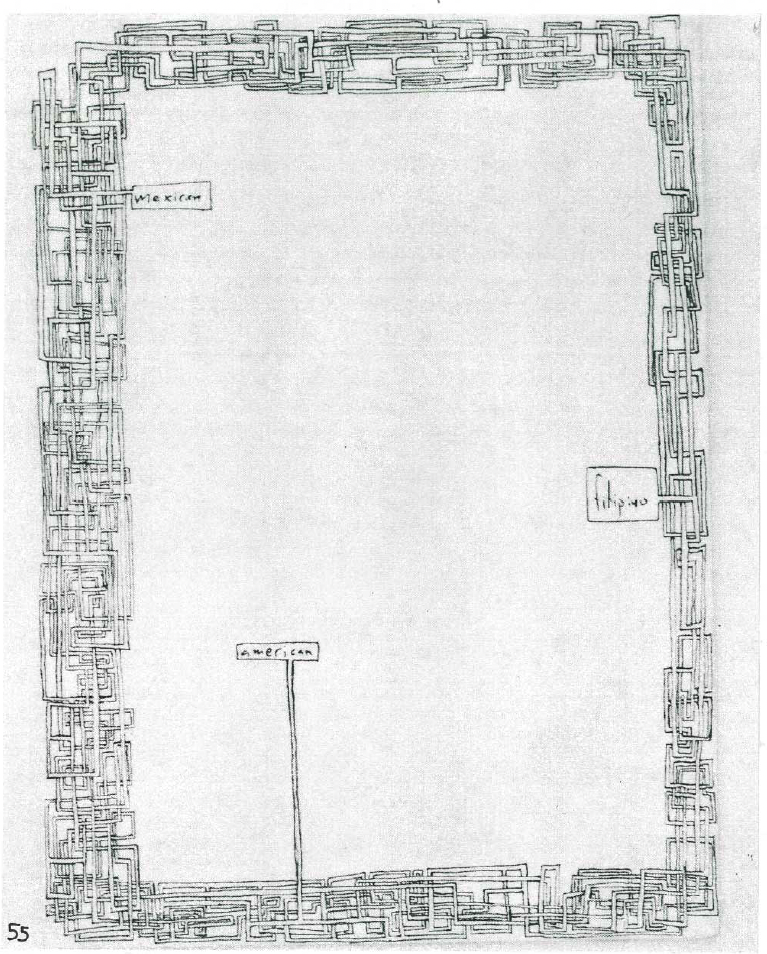 mexican
filipino
american
55